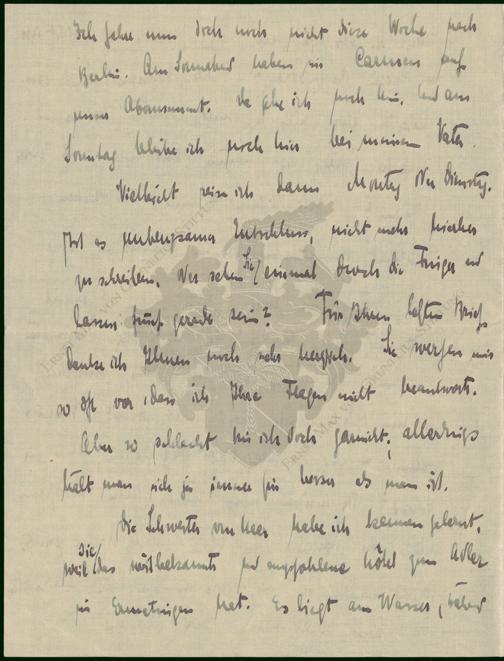 Ich fahre nun doch noch nicht diese Woche nach
Berlin. Am Sonnabend haben wir Carmen auf
unser Abonnement. Da gehe ich noch hin. Und am
Sonntag bleibe ich noch hier bei meinem Vater.
Vielleicht reise ich dann Montag oder Dienstag.
Ist es unbeugsamer Entschluss, nicht mehr hierher
zu schreiben, oder sehen Sie einmal durch die Finger und
lassen fünf gerade sein? Für Ihren letzten Brief
danke ich Ihnen noch sehr herzlich. Sie werfen mir
so oft vor, dass ich Ihre Fragen nicht beantworte.
Aber so schlecht bin ich doch garnicht, allerdings
hält man sich ja immer für besser als man ist.
Die Schwester von hier habe ich kennen gelernt,
weil sie das weitbekannte und empfohlene Hôtel zum Adler
in Ermatingen hat. Es liegt am Wasser,